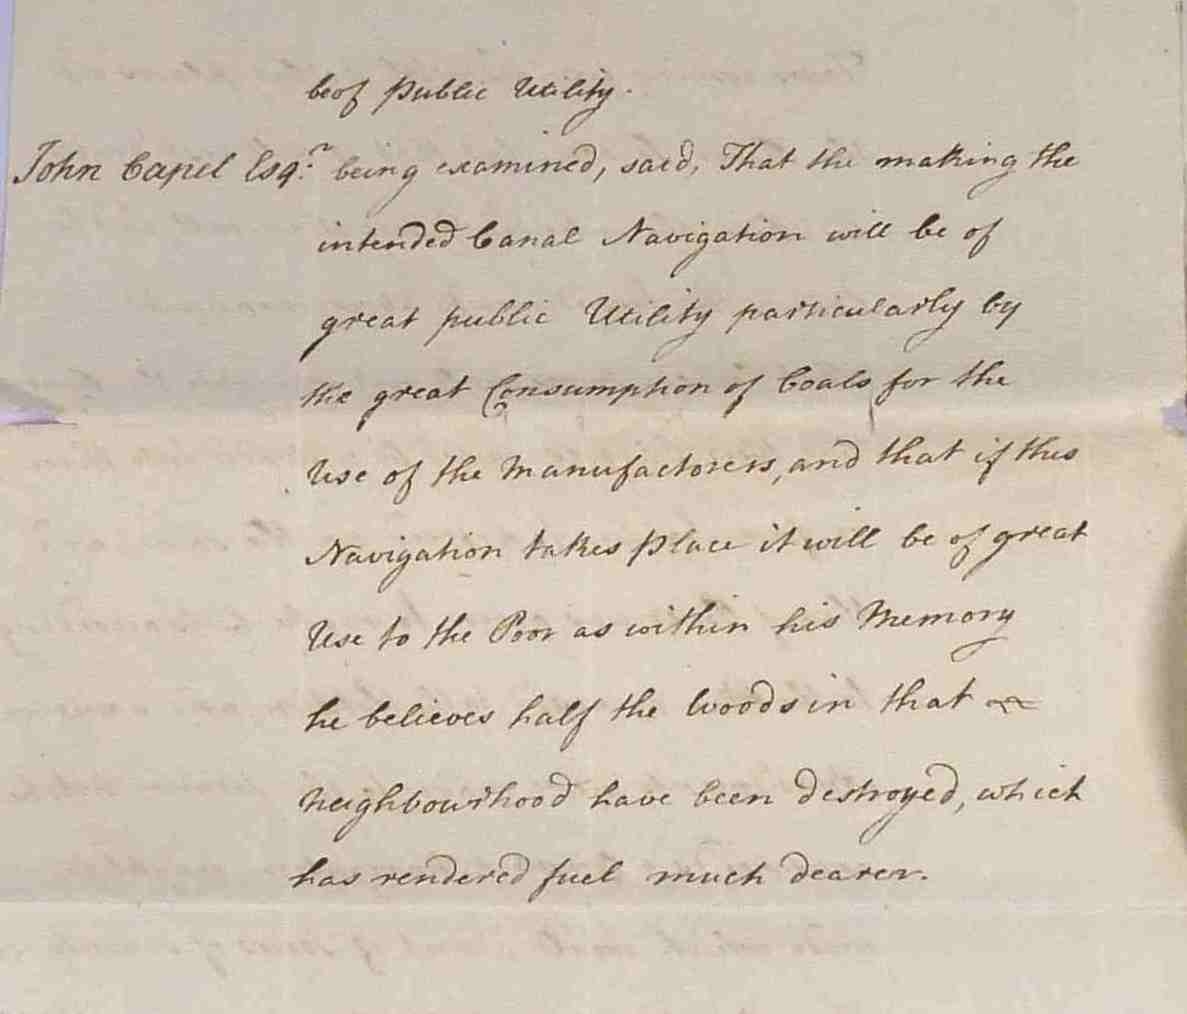 be of Public Utility.
John Capel Esqr. being examined, said, That the making the
intended Canal Navigation will be of
great public Utility particularly by
the great Consumption of Coals for the
Use of the Manufactorers, and that if this
Navigation takes Place it will be of great
Use to the Poor as within his Memory
he believes half the Woods in that
Neighbourhood have been destroyed, which
has rendered fuel much dearer.